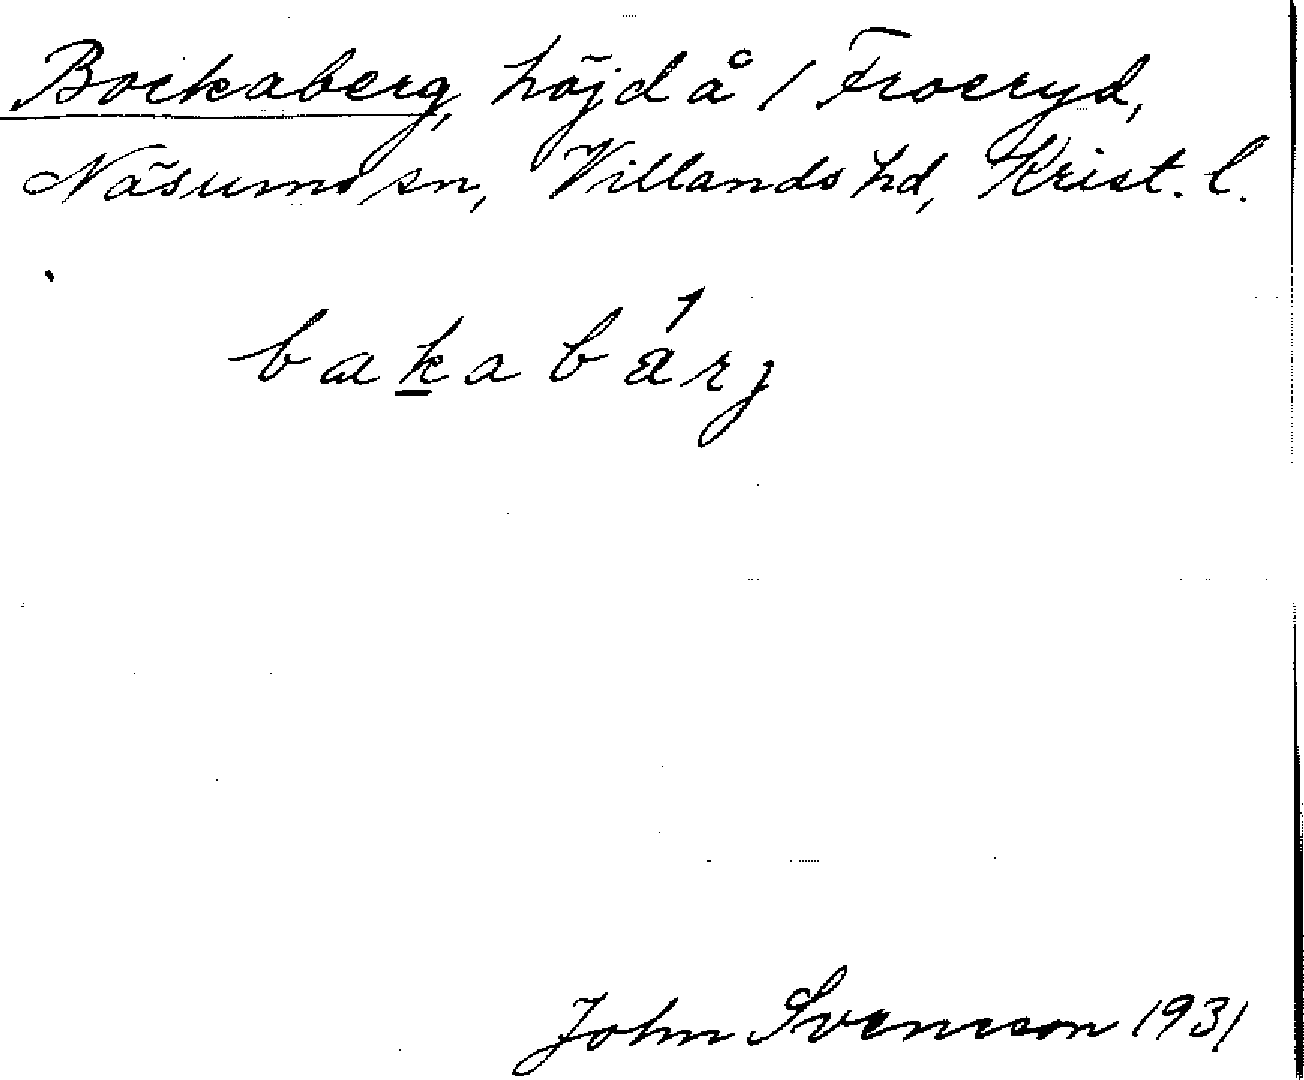 Bockaberg, höjd å 1 Froeryd,
Näsums sn, Villands hd, Krist. l.
bakabärj
John Svensson 1931